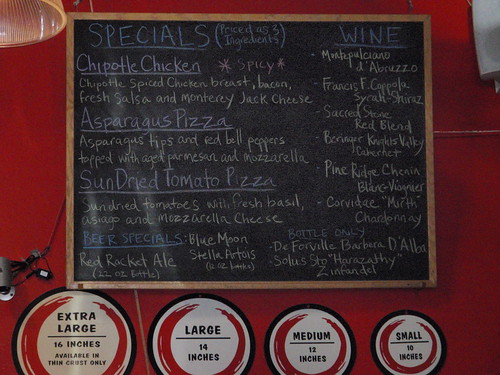 SPECIALS (Priced as 3
Ingredients)
Chipotle Chicken * SPICY *
Chipotle Spiced Chicken breast, bacon,
fresh Salsa and monterey Jack Cheese
Asparagus Pizza
Asparagus tips and red bell peppers
topped with aged parmesan and mozzarella
SunDried Tomato Pizza
Sundried tomatoes with fresh basil,
asiago and mozzarella cheese
BEER SPECIALS: Blue Moon
Red Rocket Ale Stella Artois
(22 oz Bottle) (12 oz bottles)
WINE
- Montepulciano
d'Abruzzo
- Francis F. Coppola
Syrah-Shiraz
- Sacred Stone
Red Blend
- Beringer Knights Valley
Cabernet
- Pine Ridge Chenin
Blanc-Viognier
- Corvidae "Mirth"
Chardonnay
BOTTLE ONLY
- DeForville Barbera D'Alba
- Solus Sto "Harazathy"
Zinfandel
EXTRA
LARGE
16 INCHES
AVAILABLE IN
THIN CRUST ONLY
LARGE
14
INCHES
MEDIUM
12
INCHES
SMALL
10
INCHES